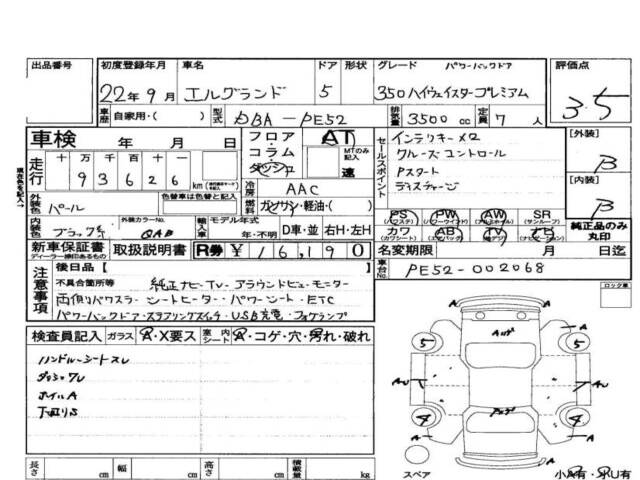 出品番号 初度登録年月 車名 ドア 形状 グレード パワーバックドア 評価点
22年9月 エルグランド 5 350ハイウェイスタープレミアム 3.5
車歴 自家用・( ) 型式 DBA-PE52 排気量 3500 cc 定員 7 人
車検 年 月 日
フロア・コラム・ダッシュ AT MTのみ記入 速
セールスポイント インテリキーX2
クルーズコントロール
Pスタート
[外装] B
[内装] B
走行 十 万 千 百 十 一
93626 km
冷房 AAC
燃料 ガソリン・軽油・( )
外装色 パール 色替車は色替と記入
内装色 外装カラーNo. QAB
輸入車 モデル年式 年・不明 D車・並 右H・左H
PS (パワステ) PW (パワーウインド) AW (アルミホイル) SR (サンルーフ)
カワ (カワシート) AB (エアバック) TV ナビ (ナビゲーション)
純正品のみ丸印
新車保証書 ディーラー捺印あるもの 取扱説明書 R券 ¥16,190
名変期限 月 日迄
車台No. PE52-002068
注意事項 後日品【
不具合箇所等 純正ナビ・TV・アラウンドビューモニター
両側パワスラ・シートヒーター・パワーシート・ETC
USB充電・フォグランプ
検査員記入 ガラス A・X要ス 室内シート A・コゲ・穴・汚れ・破れ
ハンドル・シートスレ
ホイルA
下回りS
ロック車
A
5 5
AU
4 4
A
スペア 小A有・小U有
長さ cm 幅 cm 高さ cm 積載量 kg
現在色を記入→